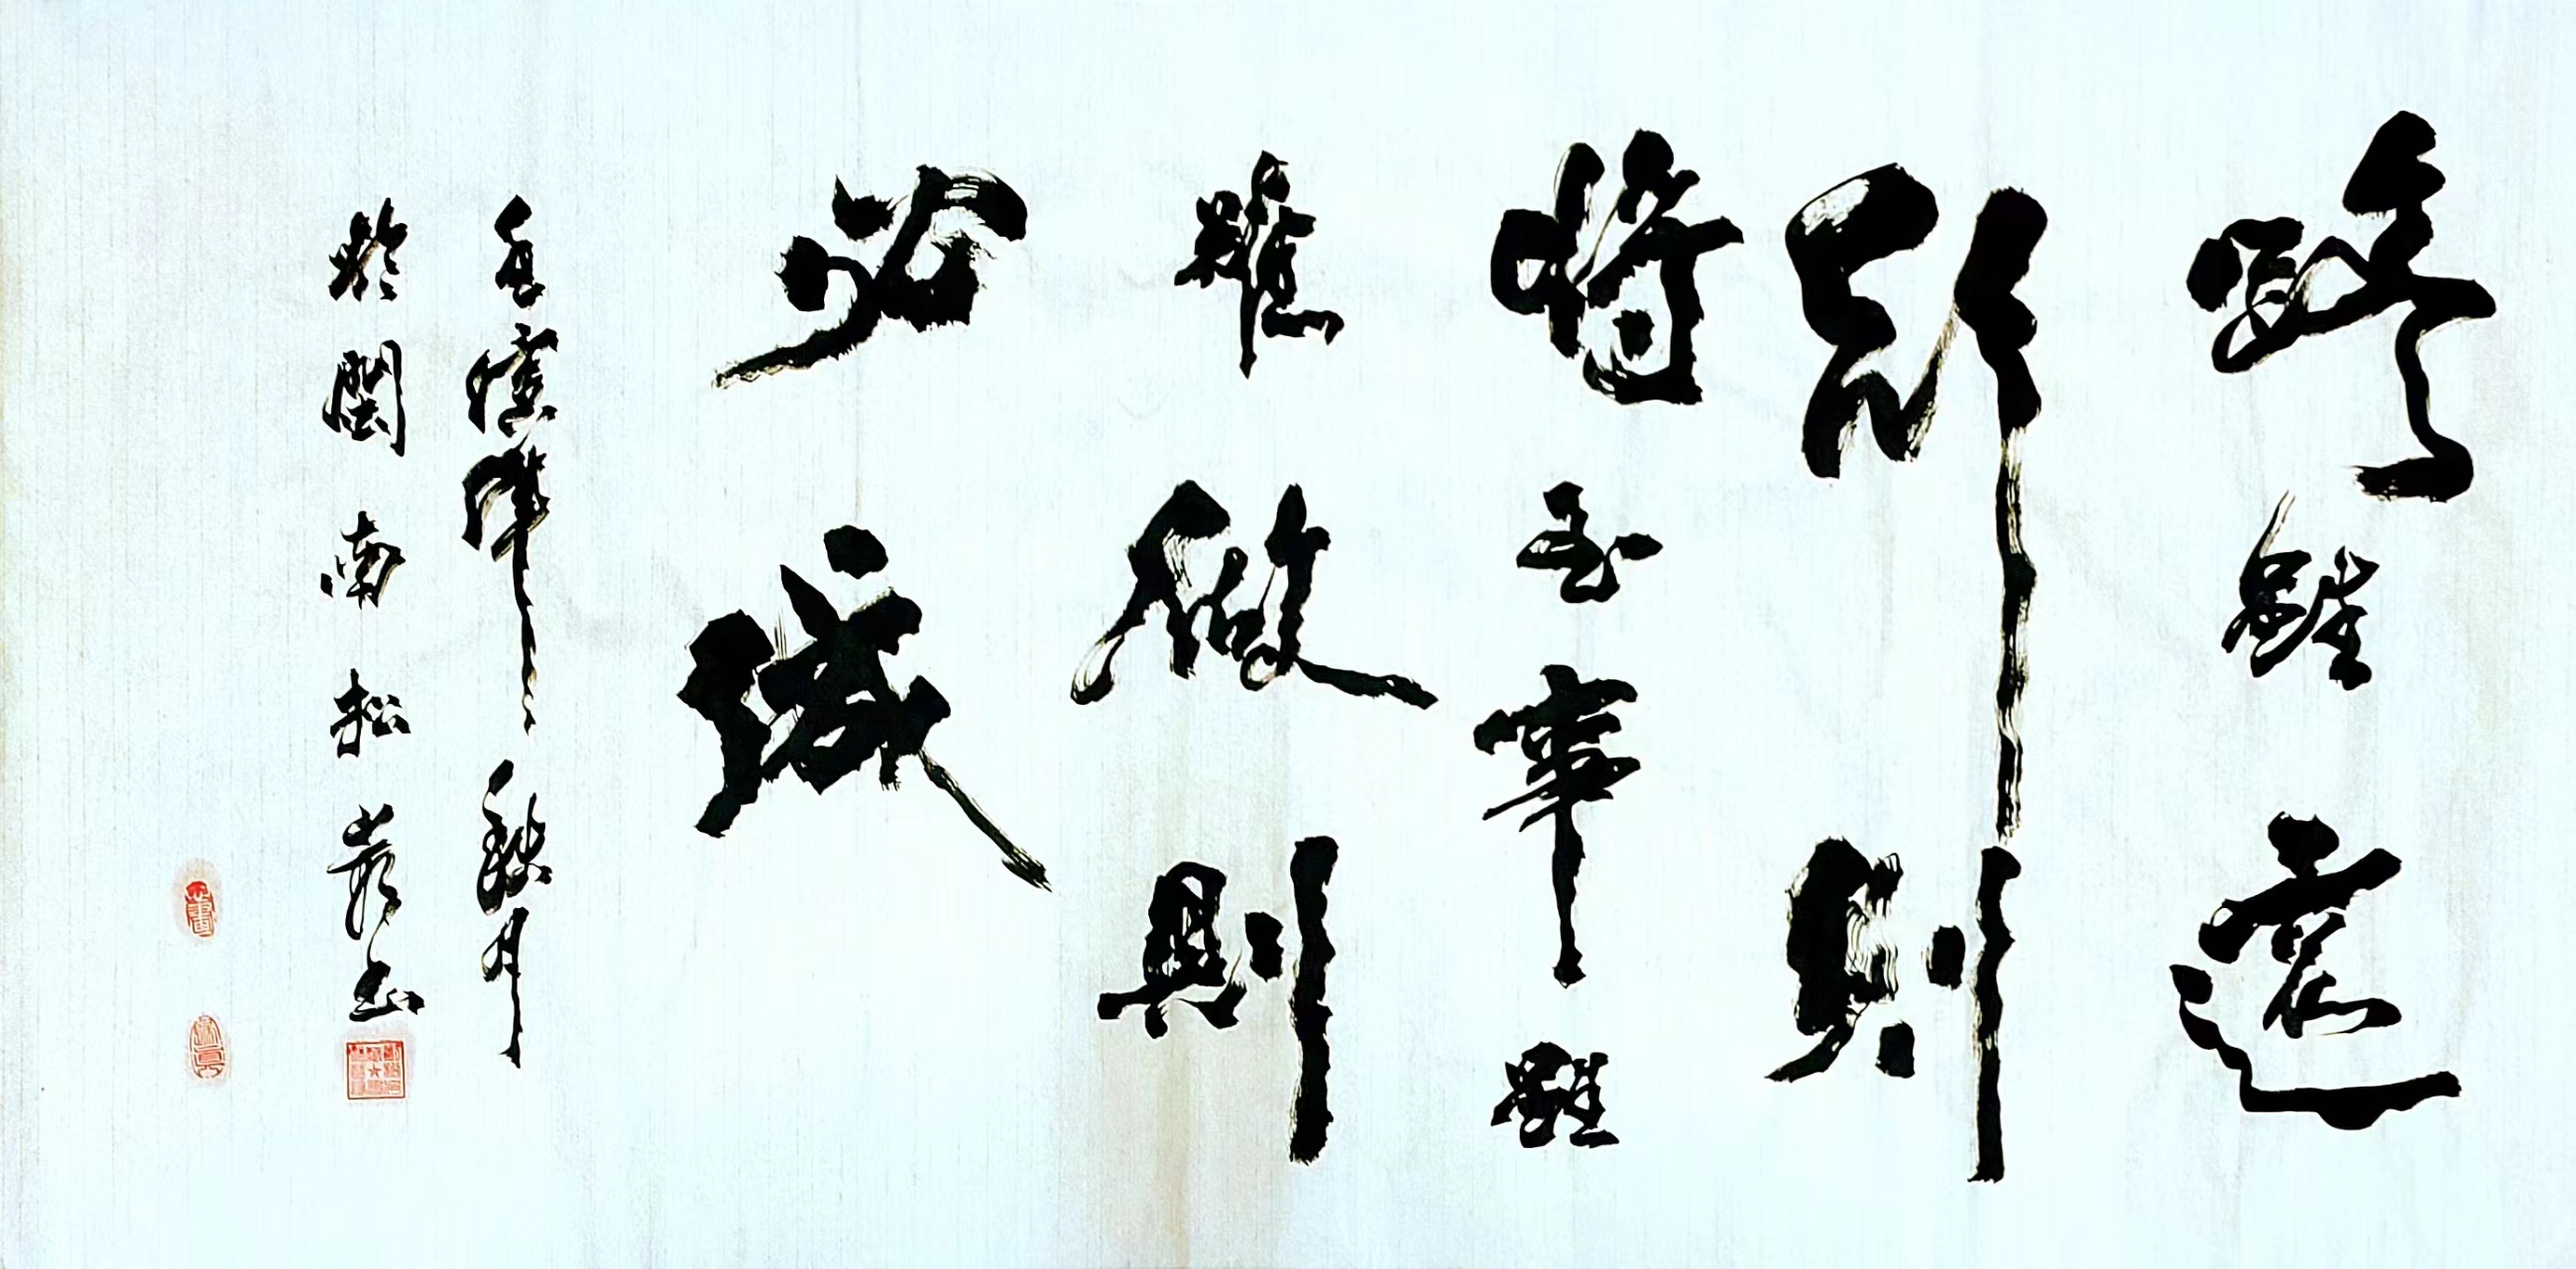 路雖遠
行則
將至事雖
難做則
必成
秋月
於閩南松嵩書